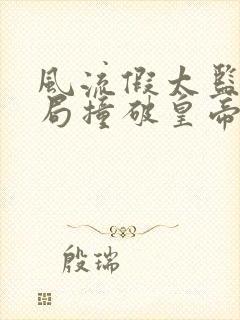 风流假太监
局撞破皇帝
殷瑞